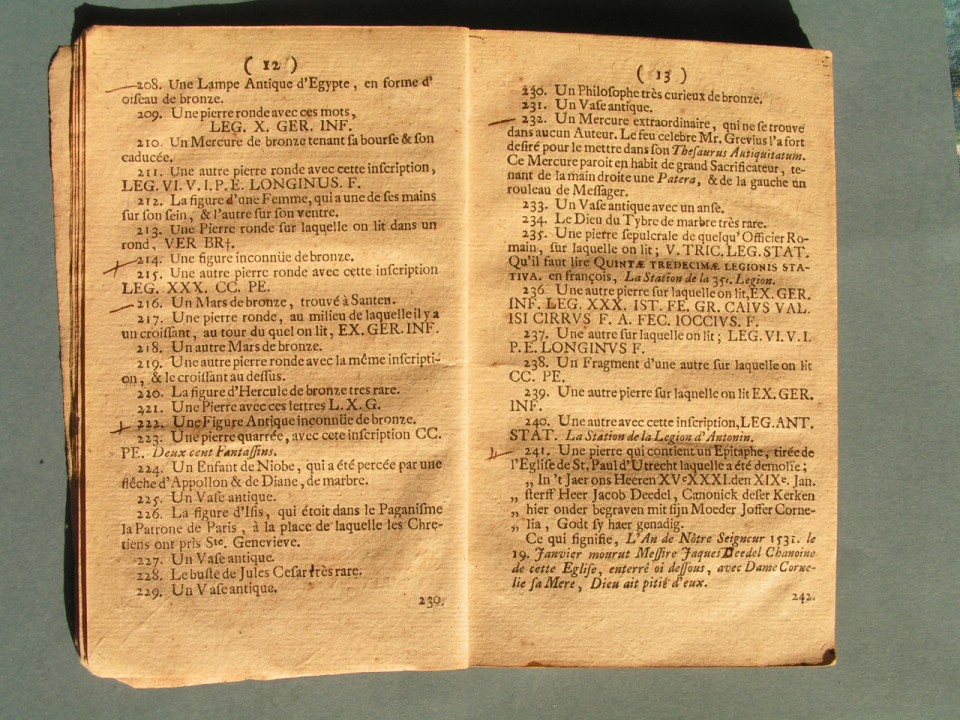 ( 12 )
208. Une Lampe Antique d'Egypte, en forme d'
oiſeau de bronze.
209. Une pierre ronde avec ces mots,
LEG. X. GER. INF.
210. Un Mercure de bronze tenant ſa bourſe & ſon
caducée.
211. Une autre pierre ronde avec cette inſcription,
LEG. VI. V. I. P. E. LONGINUS. F.
212. La figure d'une Femme, qui a une de ſes mains
ſur ſon ſein, & l'autre ſur ſon ventre.
213. Une Pierre ronde ſur laquelle on lit dans un
rond, VER BR†.
214. Une figure inconnüe de bronze.
215. Une autre pierre ronde avec cette inſcription
LEG. XXX. CC. PE.
216. Un Mars de bronze, trouvé à Santen.
217. Une pierre ronde, au milieu de laquelle il y a
un croiſſant, au tour du quel on lit, EX. GER. INF.
218. Un autre Mars de bronze.
219. Une autre pierre ronde avec la même inſcripti-
on, & le croiſſant au deſſus.
220. La figure d'Hercule de bronze tres rare.
221. Une Pierre avec ces lettres L. X. G.
222. Une Figure Antique inconnüe de bronze.
223. Une pierre quarrée, avec cete inſcription CC.
PE. Deux cent Fantaſſins.
224. Un Enfant de Niobe, qui a été percée par une
flêche d'Appollon & de Diane, de marbre.
225. Un Vaſe antique.
226. La figure d'Iſis, qui étoit dans le Paganiſme
la Patrone de Paris, à la place de laquelle les Chre-
tiens ont pris Ste. Genevieve.
227. Un Vaſe antique.
228. Le buſte de Jules Ceſar très rare.
229. Un Vaſe antique.
230.
( 13 )
230. Un Philoſophe très curieux de bronze.
231. Un Vaſe antique.
232. Un Mercure extraordinaire, qui ne ſe trouve
dans aucun Auteur. Le feu celebre Mr. Grevius l'a fort
deſiré pour le mettre dans ſon Theſaurus Autiquitatum.
Ce Mercure paroit en habit de grand Sacrificateur, te-
nant de la main droite une Patera, & de la gauche un
rouleau de Meſſager.
233. Un Vaſe antique avec un anſe.
234. Le Dieu du Tybre de marbre très rare.
235. Une pierre sepulcrale de quelqu' Officier Ro-
main, ſur laquelle on lit; V. TRIC. LEG. STAT.
Qu'il faut lire QUINTÆ TREDECIMÆ LEGIONIS STA-
TIVA. en françois, La Station de la 35e. Legion.
236. Une autre pierre ſur laquelle on lit, EX. GER.
INF. LEG. XXX. IST. FE. GR. CAIVS VAL.
ISI CIRRVS F. A. FEC. IOCCIVS. F.
237. Une autre ſur laquelle on lit; LEG. VI. V. I.
P. E. LONGINVS F.
238. Un Fragment d'une autre ſur laquelle on lit
CC. PE.
239. Une autre pierre ſur laqnelle on lit EX. GER.
INF.
240. Une autre avec cette inſcription, LEG. ANT.
STAT. La Station de la Legion d'Antonin.
241. Une pierre qui contient un Epitaphe, tirée de
l'Egliſe de St. Paul d'Utrecht laquelle a été demolie;
„ In 't Jaer ons Heeren XVcXXXI. den XIXe. Jan.
„ ſterff Heer Jacob Deedel, Canonick deſer Kerken
„ hier onder begraven mit ſijn Moeder Joffer Corne-
„ lia, Godt ſy haer genadig.
Ce qui ſignifie, L'An de Nôtre Seigneur 1531. le
19. Janvier mourut Meſſire Jaques Deedel Chanoine
de cette Egliſe, enterré oi deſſous, avec Dame Corne-
lie ſa Mere, Dieu ait pitié d'eux.
242.